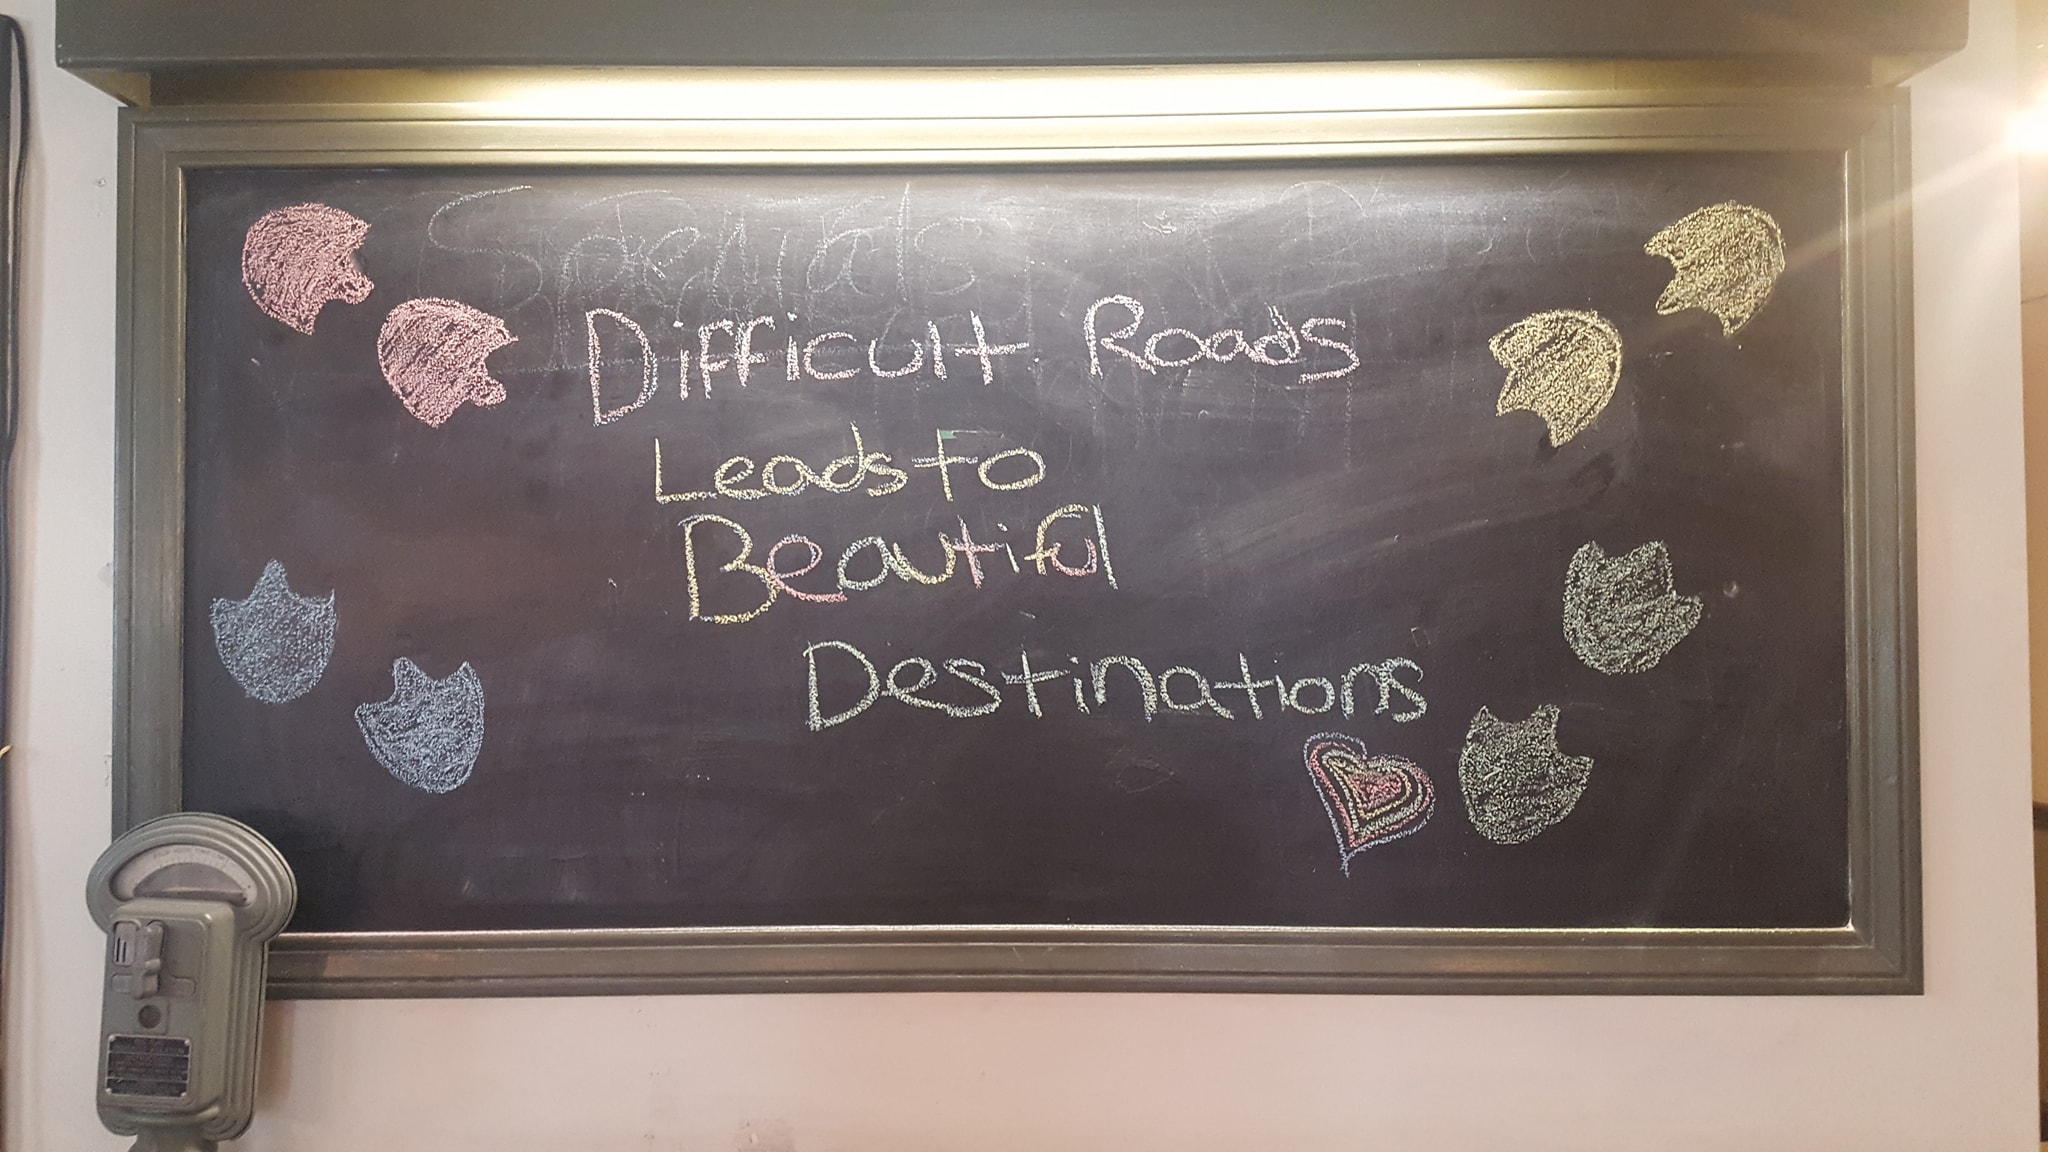 Specials
Difficult Roads
Leads to
Beautiful
Destinations